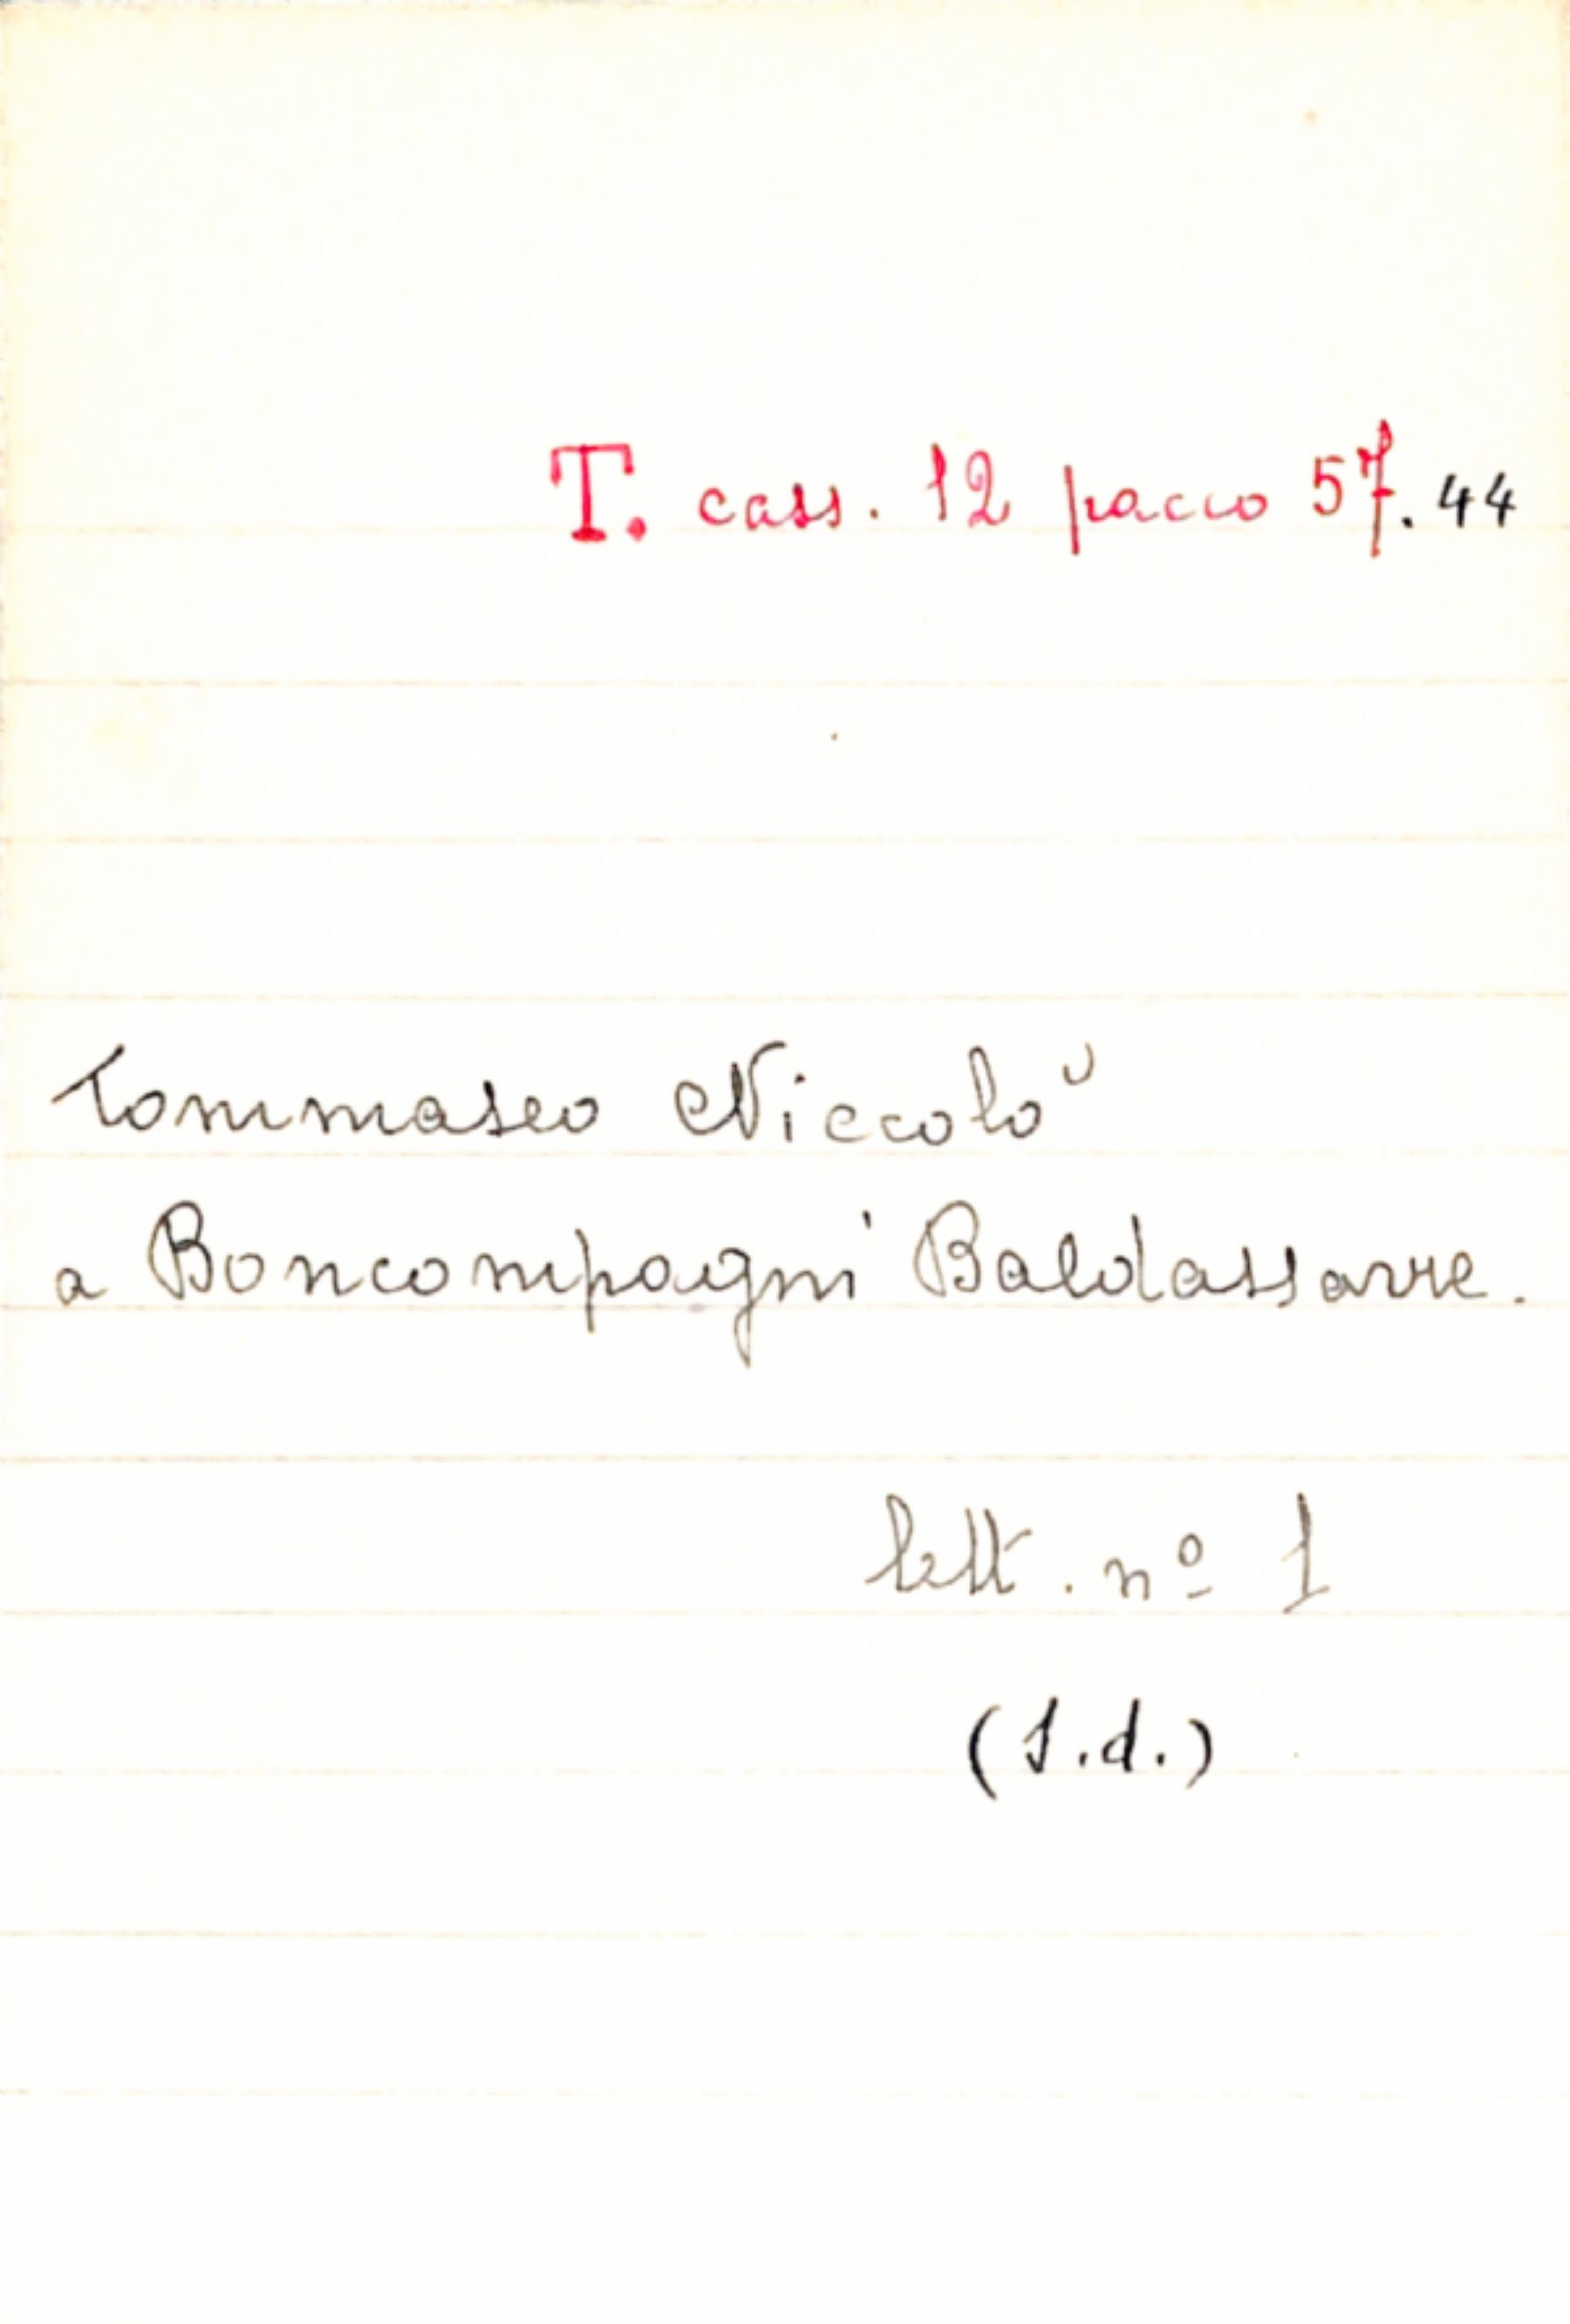 T. cass. 12 pacco 57.44
Tommaseo Niccolò
a Boncompagni Baldassarre.
lett. nº 1
(s.d.)